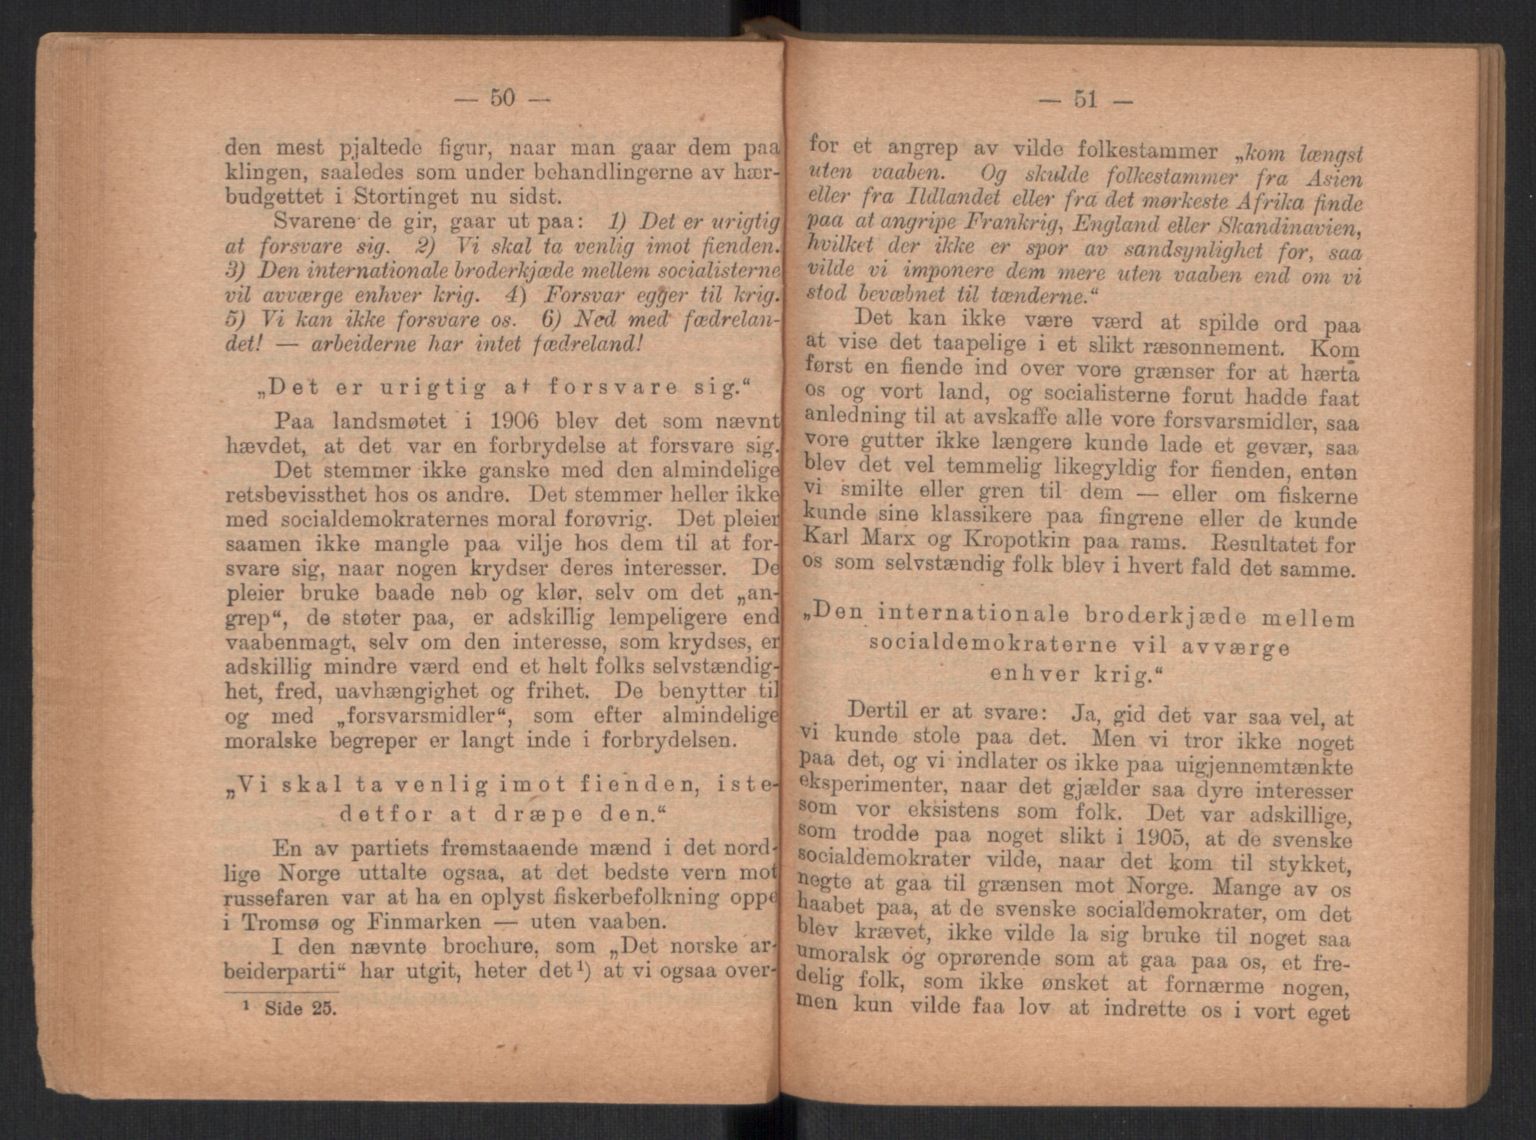 — 50 —
den mest pjaltede figur, naar man gaar dem paa
klingen, saaledes som under behandlingerne av hær-
budgettet i Stortinget nu sidst.
Svarene de gir, gaar ut paa: 1) Det er urigtig
at forsvare sig. 2) Vi skal ta venlig imot fienden.
3) Den internationale broderkjæde mellem socialisterne
vil avværge enhver krig. 4) Forsvar egger til krig.
5) Vi kan ikke forsvare os. 6) Ned med fædrelan-
det! — arbeiderne har intet fædreland!
„Det er urigtig at forsvare sig.“
Paa landsmøtet i 1906 blev det som nævnt
hævdet, at det var en forbrydelse at forsvare sig.
Det stemmer ikke ganske med den almindelige
retsbevissthet hos os andre. Det stemmer heller ikke
med socialdemokraternes moral forøvrig. Det pleier
saamen ikke mangle paa vilje hos dem til at for-
svare sig, naar nogen krydser deres interesser. De
pleier bruke baade neb og klør, selv om det „an-
grep“, de støter paa, er adskillig lempeligere end
vaabenmagt, selv om den interesse, som krydses, er
adskillig mindre værd end et helt folks selvstændig-
het, fred, uavhængighet og frihet. De benytter til
og med „forsvarsmidler“, som efter almindelige
moralske begreper er langt inde i forbrydelsen.
„Vi skal ta venlig imot fienden, iste-
detfor at dræpe den.“
En av partiets fremstaaende mænd i det nord-
lige Norge uttalte ogsaa, at det bedste vern mot
russefaren var at ha en oplyst fiskerbefolkning oppe
i Tromsø og Finmarken — uten vaaben.
I den nævnte brochure, som „Det norske ar-
beiderparti“ har utgit, heter det¹) at vi ogsaa over-
¹ Side 25.
— 51 —
for et angrep av vilde folkestammer „kom længst
uten vaaben. Og skulde folkestammer fra Asien
eller fra Ildlandet eller fra det mørkeste Afrika finde
paa at angripe Frankrig, England eller Skandinavien,
hvilket der ikke er spor av sandsynlighet for, saa
vilde vi imponere dem mere uten vaaben end om vi
stod bevæbnet til tænderne.“
Det kan ikke være værd at spilde ord paa
at vise det taapelige i et slikt ræsonnement. Kom
først en fiende ind over vore grænser for at hærta
os og vort land, og socialisterne forut hadde faat
anledning til at avskaffe alle vore forsvarsmidler, saa
vore gutter ikke længere kunde lade et gevær, saa
blev det vel temmelig likegyldig for fienden, enten
vi smilte eller gren til dem — eller om fiskerne
kunde sine klassikere paa fingrene eller de kunde
Karl Marx og Kropotkin paa rams. Resultatet for
os som selvstændig folk blev i hvert fald det samme.
„Den internationale broderkjæde mellem
socialdemokraterne vil avværge
enhver krig.“
Dertil er at svare: Ja, gid det var saa vel, at
vi kunde stole paa det. Men vi tror ikke noget
paa det, og vi indlater os ikke paa uigjennemtænkte
eksperimenter, naar det gjælder saa dyre interesser
som vor eksistens som folk. Det var adskillige,
som trodde paa noget slikt i 1905, at de svenske
socialdemokrater vilde, naar det kom til stykket,
negte at gaa til grænsen mot Norge. Mange av os
haabet paa, at de svenske socialdemokrater, om det
blev krævet, ikke vilde la sig bruke til noget saa
umoralsk og oprørende som at gaa paa os, et fre-
delig folk, som ikke ønsket at fornærme nogen,
men kun vilde faa lov at indrette os i vort eget